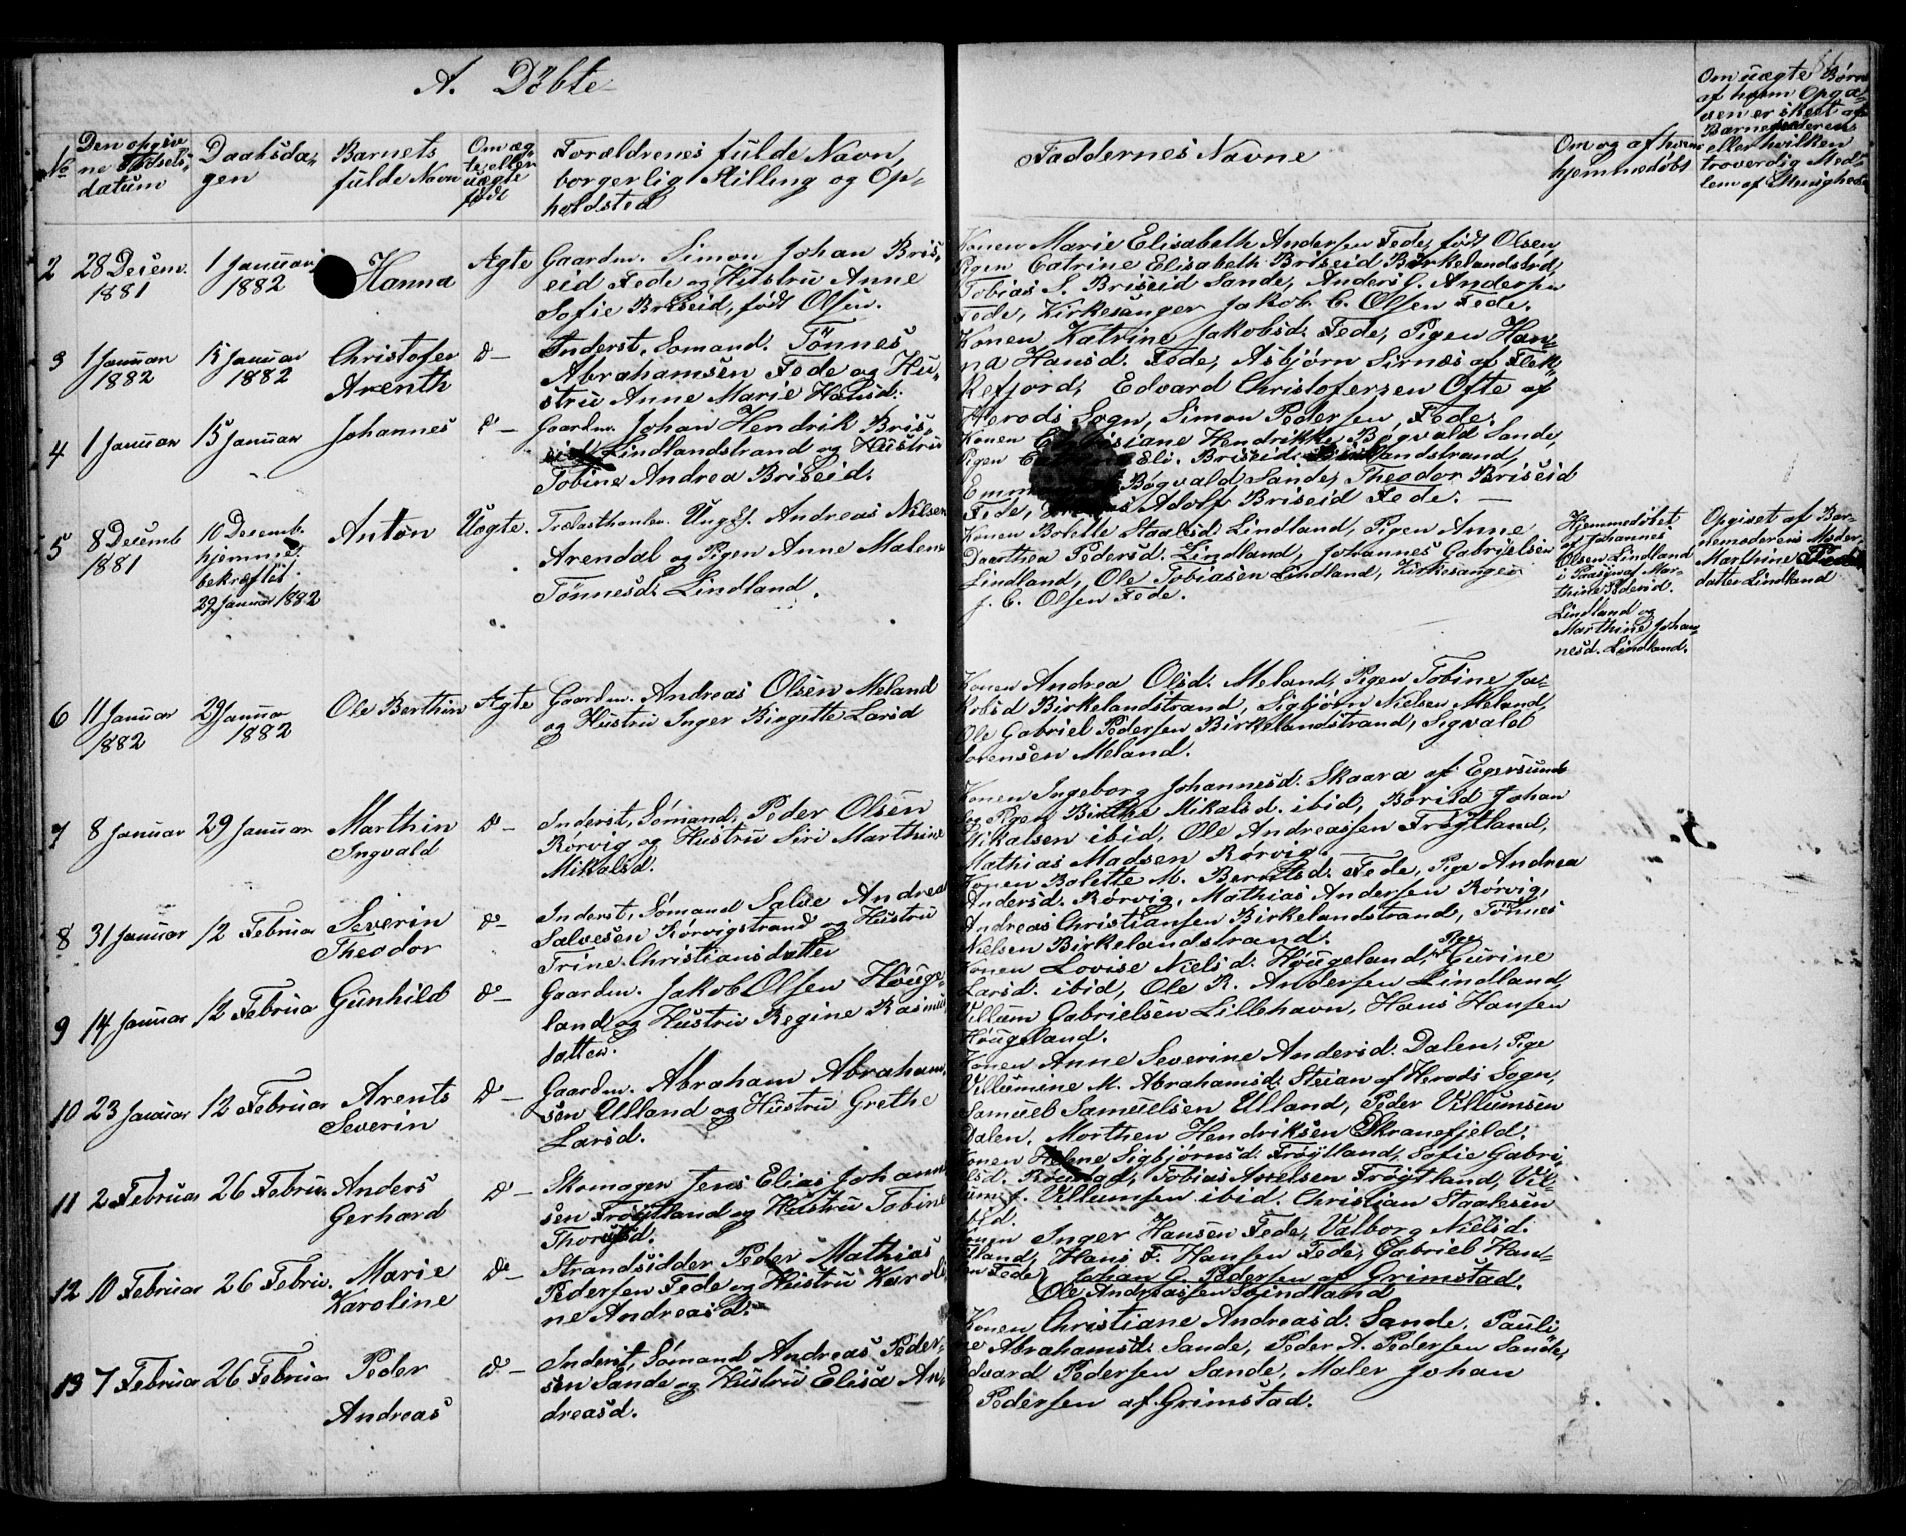 A. Döbte
№
Den opgiv
ne Födsels-
datum
Daabsda-
gen
Barnets
fulde Navn
Om æg
te eller
uægte
født
Forældrenes fulde Navn,
borgerlig Stilling og Op-
holdsted
Faddernes Navne
Om og af hvem
hjemmedöbt
Om uægte Børn
af hvem Opgæ-
ven er skeet af
Barnefaderens
eller hvilken
troverdig Med-
lem af Menighed
2
28 Decem.
1881
1 Januari
1882
Hanna
Ægte
Gaardm. Simon Johan Bris-
eid Fede og Hustru Anne
Sofie Briseid, født Olsen.
Konen Marie Elisabeth Andersen Fede, født Olsen
Pigen Catrine Elisabeth Briseid Birkelandstrd,
Tobias S. Briseid Sande, Anders G. Andersen
Fede, Kirkesanger Jakob C. Olsen Fede.
3
1 Januar
1882
15 Januar
1882
Christofer
Arenth
d-
Inderst, Somand. Tönnes
Abrahamsen Fede og Hu-
stru Anne Marie Hansd.
Konen Katrine Jakobsd. Fede, Pigen Han-
na Hansd. Fede, Asbjørn Sirnæs af Flek-
kefjord, Edvard Christofersen Ofte af
Herods Sogn, Simon Pedersen, Fede.
4
1 Januar
15 Januar
Johannes
d-
Gaardm. Johan Hendrik Bris-
eid Lindlandstrand og Hustru
Tobine Andrea Briseid.
Konen siane Hendrikke Bøgvald Sande
Pigen Eli. Briseid landstrand,
Bøgvald Sande, Theodor Briseid
Fede, Adolf Briseid Fede. —
5
8 Decemb
1881
10 Desemb.
hjemme.
bekræftet
29 Januar 1882
Anton
Uægte.
Trælasthandler. Ungk. Andreas Nilsen
Arendal og Pigen Anne Malene
Tönnesd. Lindland.
Konen Bolette Staalesd. Lindland, Pigen Anne
Dorthea Pedersd. Lindland, Johannes Gabrielsen
Lindland, Ole Tobiasen Lindland, Kirkesanger
J. C. Olsen Fede.
Hjemmedöbt
af Johannes
Olsen Lindland
i Paasyn af Mar-
thine Pedersd.
Lindland og
Marthine Johan-
nesd. Lindland.
Opgivet af Bar-
nemoderens Moder
Marthine Peders
datter Lindland
6
11 Januar
1882
29 Januar
1882
Ole Berthin
Ægte
Gaardm. Andreas Olsen Meland
og Hustru Inger Birgitte Larsd
Konen Andrea Olsd. Meland, Pigen Tobine Ja-
kobsd Birkelandstrand, Sigbjörn Nielsen Meland,
Ole Gabriel Pedersen Birkelandstrand, Sigvald
Sorensen Meland.
7
8 Januar
29 Januar
Marthin
Ingvald
d-
Inderst, Sömand, Peder Olsen
Rørvig og Hustru Siri Marthine
Mikalsd.
Konen Ingeborg Johannesd. Skaara af Egersund
og Pigen Birthe Mikalsd. ibid, Börild Johan
Mikalsen ibid, Ole Andreassen Frøytland,
Mathias Madsen Rørvig.
8
31 Januar
12 Februar
Severin
Theodor
d-
Inderst, Sömand Salve Andrea
Salvesen Rørvigstrand og Hustru
Trine Christiansdatter
Konen Bolette M. Berntsd. Fede, Pige Andrea
Andersd. Rørvig, Mathias Andersen Rørvig,
Andreas Christiansen Birkelandstrand, Tönnes
Nielsen Birkelandstrand.
9
14 Januar
12 Februa
Gunhild
d-
Gaardm. Jakob Olsen Höuge-
land og Hustru Regine Rasmus
datter.
Konen Lovise Nielsd. Höugeland, Pige Gurine
Larsd. ibid, Ole R. Andersen Lindland,
Villum Gabrielsen Lillehavn, Hans Hansen
Höugeland.
10
23 Januar
12 Februar
Arents
Severin
d-
Gaardm. Abraham Abraham-
sen Ulland og Hustru Grethe
Larsd.
Konen Anne Severine Andersd. Dalen, Pige
Villumine M. Abrahamsd. Steian af Herods Sogn,
Samuel Samuelsen Ulland, Peder Villumsen
Dalen, Morthen Hendriksen Skranefjeld.
11
2 Februar
26 Februar
Anders
Gerhard
d-
Skomager Jens Elias Johann
sen Frøytland og Hustru Tobine
Thorsd.
Konen Helene Sigbjørnsd. Frøytland, Sofie Gabri-
elsd. Tobias Axelsen Frøytland, Vil-
lum J. Villumsen ibid. Christian Staalesen
ibid.
12
10 Februar
26 Februa.
Marie
Karoline
d-
Strandsidder Peder Mathias
Pedersen Fede og Hustru Karoli
ne Andreasd.
Konen Inger Hansen Fede, Valborg Nielsd.
Hans F. Hansen Fede, Gabriel Han-
sen Fede, Johan G. Pedersen af Grimstad.
Ole Andreassen Lindland
13
7 Februar
26 Februar
Peder
Andreas
d-
Inderst, Sömand Andreas Peder-
sen Sande og Hustru Elisa An-
dreasd.
Konen Christiane Andreasd. Sande. Pauli
ne Abrahamsd. Sande, Peder A. Pedersen Sande,
Edvard Pedersen Sande, Maler Johan
Pedersen af Grimstad.